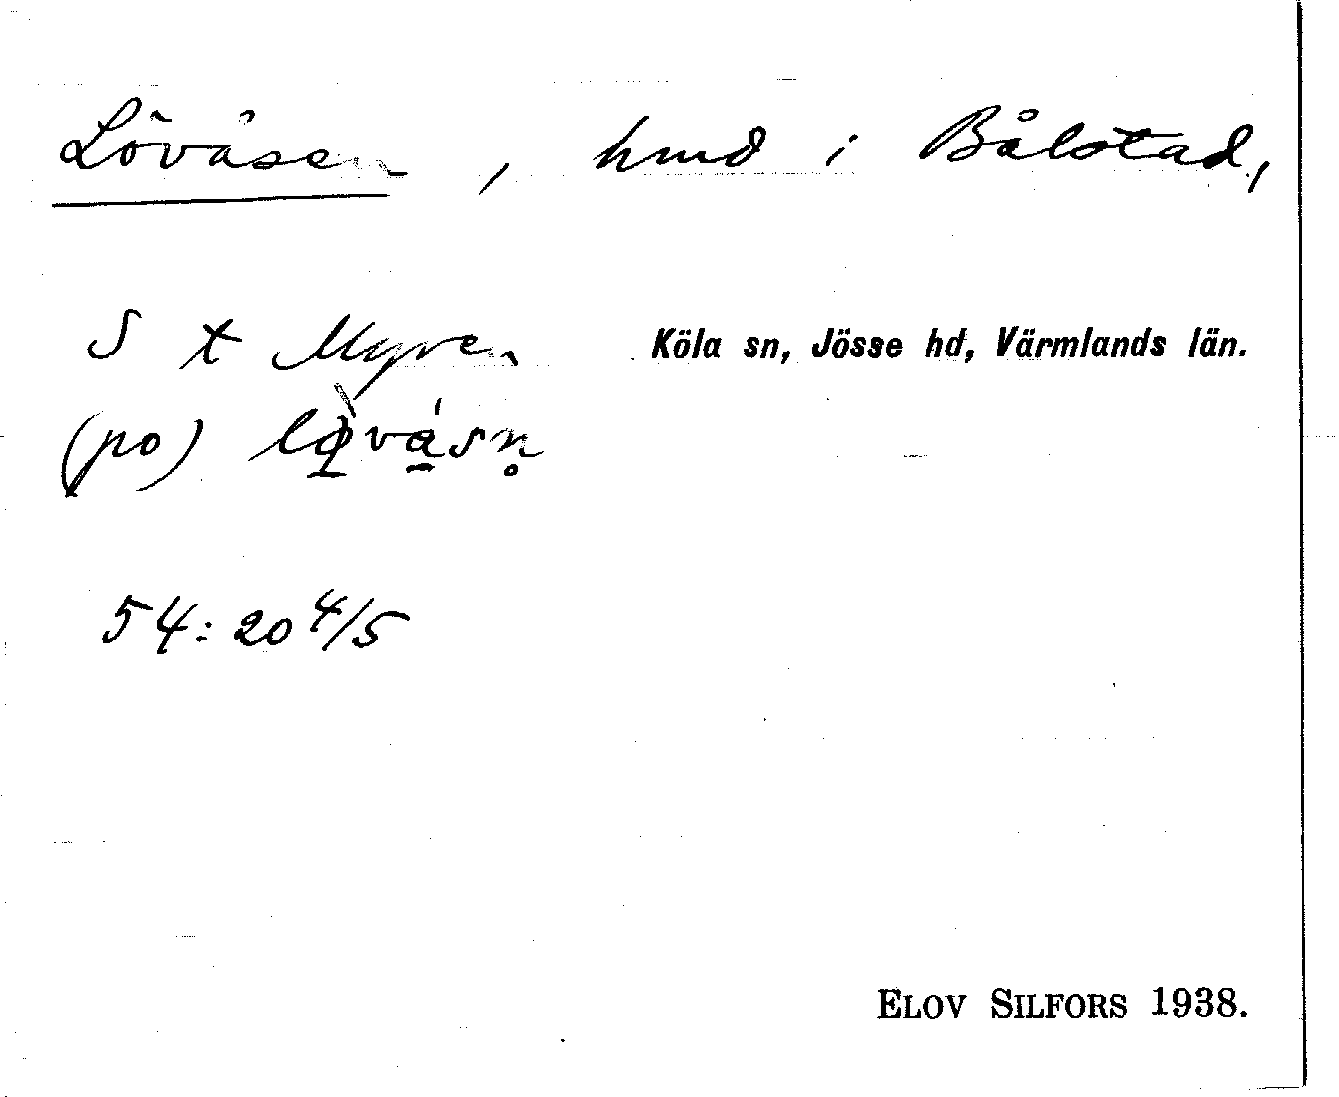 Lövåsen, hmd i Bålstad,
S t Myren Köla sn, Jösse hd, Värmlands län.
(po)
54:20 4/5
ELOV SILFORS 1938.